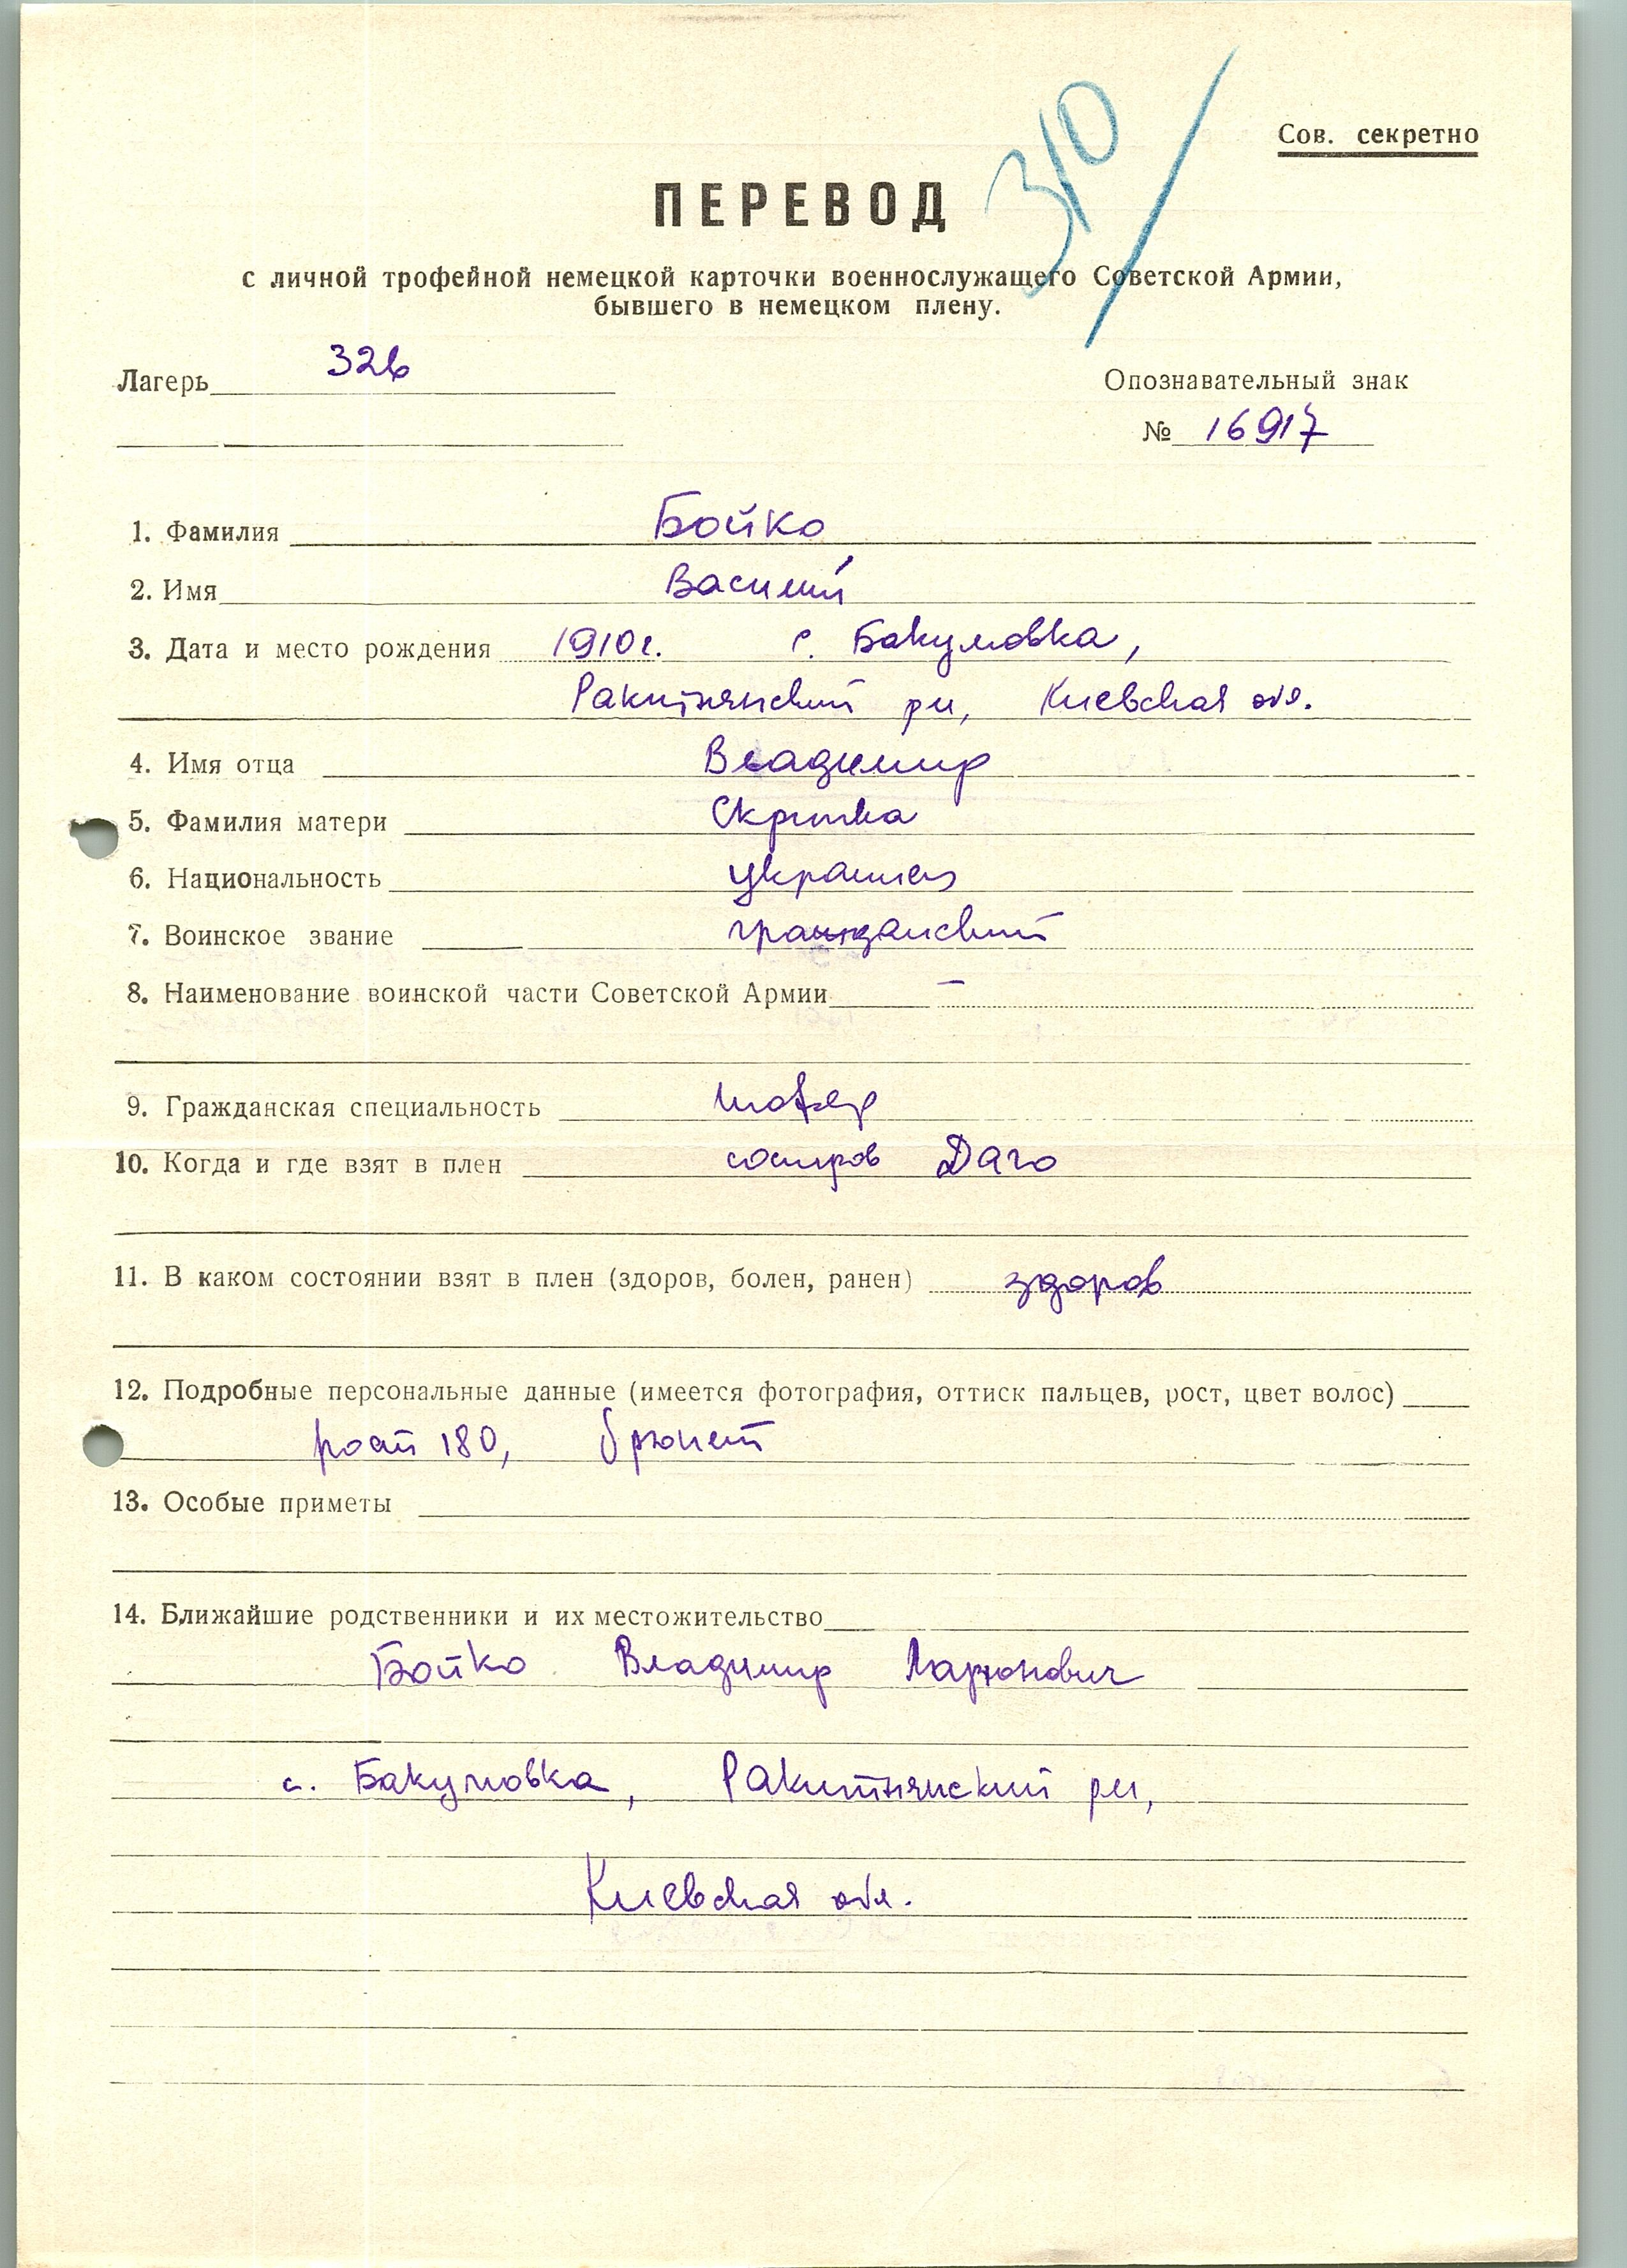 310/
Сов. секретно
ПЕРЕВОД
с личной трофейной немецкой карточки военнослужащего Советской Армии,
бывшего в немецком плену.
Лагерь 326
Опознавательный знак
№ 16917
1. Фамилия Бойко
2. Имя Василий
3. Дата и место рождения 1910 г. с. Бакумовка,
Ракитнянский рн, Киевская обл.
4. Имя отца Владимир
5. Фамилия матери
6. Национальность украинец
7. Воинское звание гражданский
8. Наименование воинской части Советской Армии –
9. Гражданская специальность шофер
10. Когда и где взят в плен о Даго
11. В каком состоянии взят в плен (здоров, болен, ранен) здоров
12. Подробные персональные данные (имеется фотография, оттиск пальцев, рост, цвет волос)
рост 180, брюнет
13. Особые приметы
14. Ближайшие родственники и их местожительство
Бойко Владимир Ларионович
с. Бакумовка, Ракитнянский рн,
Киевская обл.